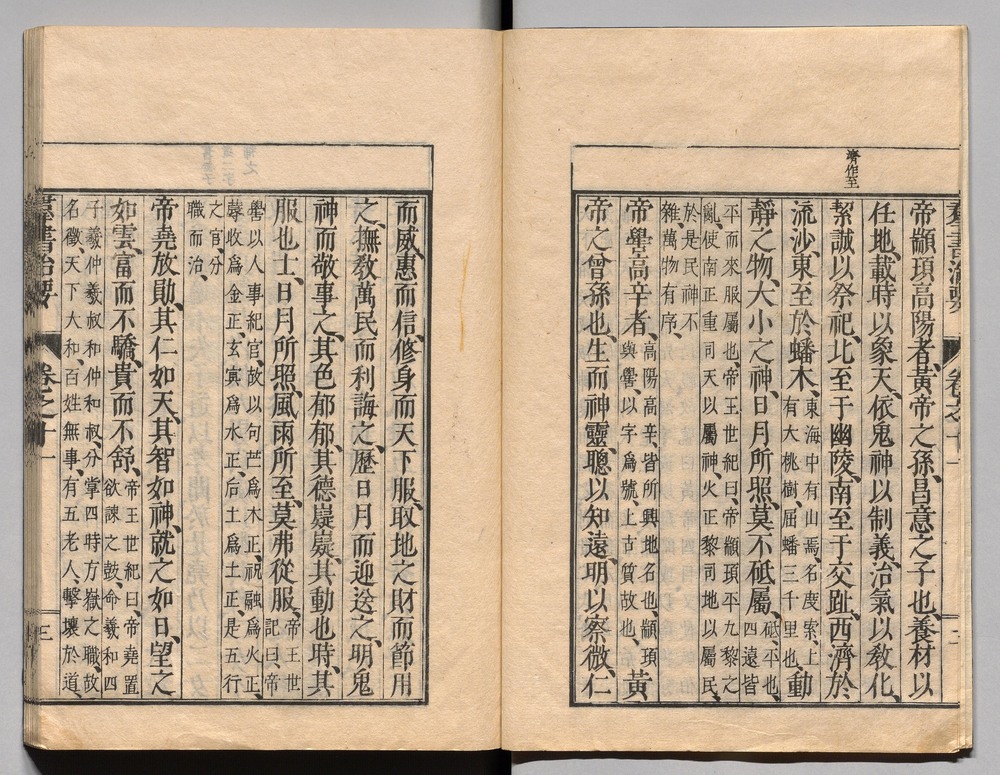 濟作至
群書治要 卷之十一 二
帝顓頊高陽者、黃帝之孫、昌意之子也、養材以
任地、載時以象天、依鬼神以制義、治氣以敎化、
絜誠以祭祀、北至于幽陵、南至于交趾、西濟於
流沙、東至於蟠木、
東海中有山焉、名度索、上
有大桃樹、屈蟠三千里也、
動
靜之物、大小之神、日月所照、莫不砥屬、
砥、平也、
四遠皆
平而來服屬也、帝王世紀曰、帝顓頊平九黎之
亂、使南正重司天以屬神、火正黎司地以屬民、
於是民神不
雜、萬物有序、
帝嚳高辛者、
高陽高辛、皆所興地名也、顓頊
與嚳、以字爲號、上古質故也、
黃
帝之曾孫也、生而神靈、聰以知遠、明以察微、仁
而威、惠而信、修身而天下服、取地之財而節用
之、撫敎萬民而利誨之、歷日月而迎送之、明鬼
神而敬事之、其色郁郁、其德嶷嶷、其動也時、其
服也士、日月所照、風雨所至、莫弗從服、
帝王世
記曰、帝
嚳以人事紀官、故以句芒爲木正、祝融爲火正、
蓐收爲金正、玄冥爲水正、后土爲土正、是五行
之官、分
職而治、
帝堯放勛、其仁如天、其智如神、就之如日、望之
如雲、富而不驕、貴而不舒、
帝王世紀曰、帝堯置
欲諫之鼓、命羲和四
子羲仲羲叔和仲和叔、分掌四時方嶽之職、故
名徵、天下大和、百姓無事、有五老人、擊壤於道、
群書治要 卷之十一 三